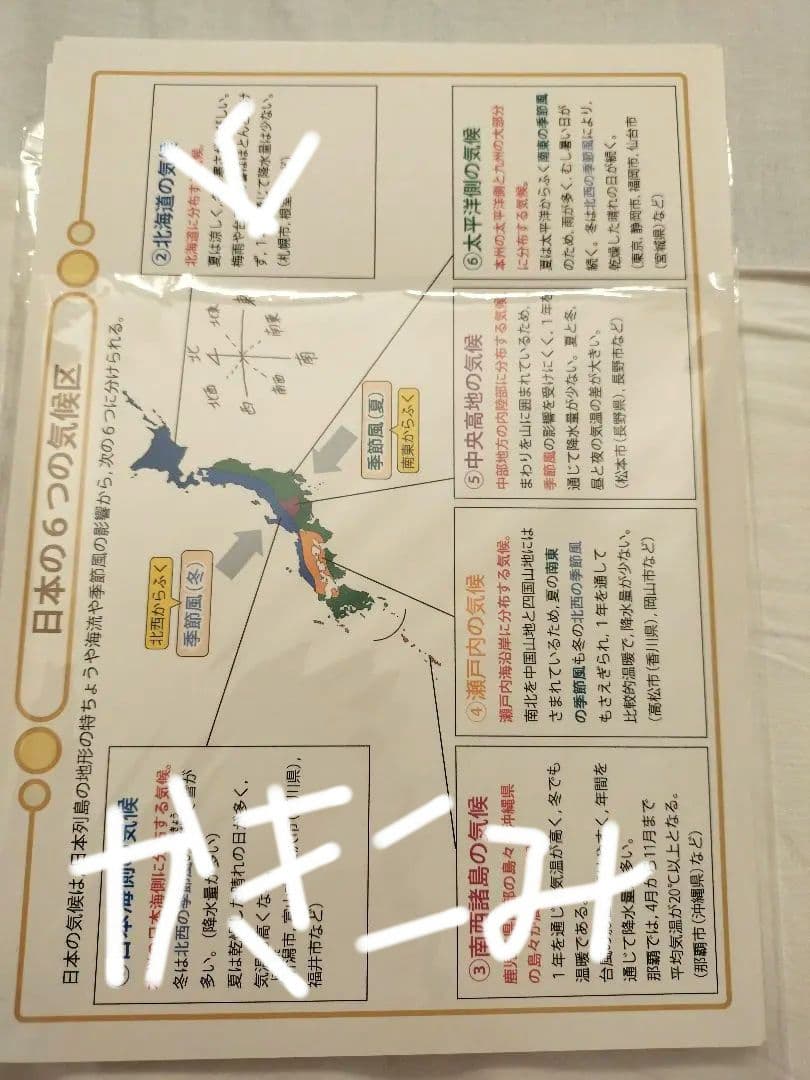 日本の６つの気候区
日本の気候は、日本列島の地形の特ちょうや海流や季節風の影響から、次の６つに分けられる。
①日本海側の気候
日本海側に分布する気候。
冬は北西の季節風
多い。(降水量が多い)
夏は乾燥 晴れの日が多く、
気温 高くな
福井市など)
北西からふく
季節風(冬)
季節風(夏)
南東からふく
北
北東
東
南東
南
南西
西
北西
②北海道の気候
北海道に分布する気候。
夏は涼しく、
梅雨や台
ず、1 じて降水量は少ない。
(札幌市、根室
③南西諸島の気候
鹿児島県 部の島々 沖縄県
の島々
1年を通じ 気温が高く、冬でも
温暖である。 すく、年間を
通じて降水量 多い。
那覇では、4月から11月まで
平均気温が20℃以上となる。
(那覇市(沖縄県)など)
④瀬戸内の気候
瀬戸内海沿岸に分布する気候。
南北を中国山地と四国山地には
さまれているため、夏の南東
の季節風も冬の北西の季節風
もさえぎられ、1年を通して
比較的温暖で、降水量が少ない。
(高松市(香川県)、岡山市など)
⑤中央高地の気候
中部地方の内陸部に分布する気候
まわりを山に囲まれているため、
季節風の影響を受けにくく、1年を
通じて降水量が少ない。夏と冬、
昼と夜の気温の差が大きい。
(松本市(長野県)、長野市など)
⑥太平洋側の気候
本州の太平洋側と九州の大部分
に分布する気候。
夏は太平洋からふく南東の季節風
のため、雨が多く、むし暑い日が
続く。冬は北西の季節風により、
乾燥した晴れの日が続く。
(東京、静岡市、福岡市、仙台市
(宮城県)など)
かきこみ